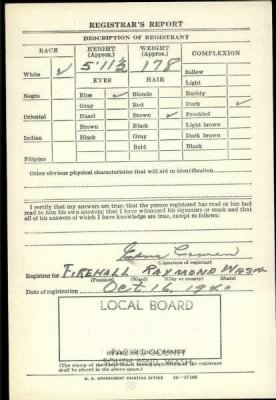 REGISTRAR'S REPORT
DESCRIPTION OF REGISTRANT
RACE HEIGHT (Approx.) WEIGHT (Approx.) COMPLEXION
5'11½ 178 Sallow
White ✓ EYES HAIR Light
Negro Blue ✓ Blonde Ruddy
Gray Red Dark ✓
Oriental Hazel Brown ✓ Freckled
Brown Black Light brown
Indian Black Gray Dark brown
Bald Black
Filipino
Other obvious physical characteristics that will aid in identification
I certify that my answers are true; that the person registered has read or has had
read to him his own answers; that I have witnessed his signature or mark and that
all of his answers of which I have knowledge are true, except as follows:
(Signature of registrar)
Registrar for FIREHALL RAYMOND WASH
(Precinct) (Ward) (City or county) (State)
Date of registration Oct 16, 1940
LOCAL BOARD
(STAMP OF LOCAL BOARD)
(The stamp of the Local Board having jurisdiction of the registrant
shall be placed in the above space.)
U. S. GOVERNMENT PRINTING OFFICE